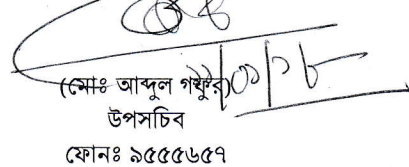 (মোঃ আব্দুল গফুর)
উপসচিব
ফোনঃ ৯৫৫৫৬৫৭